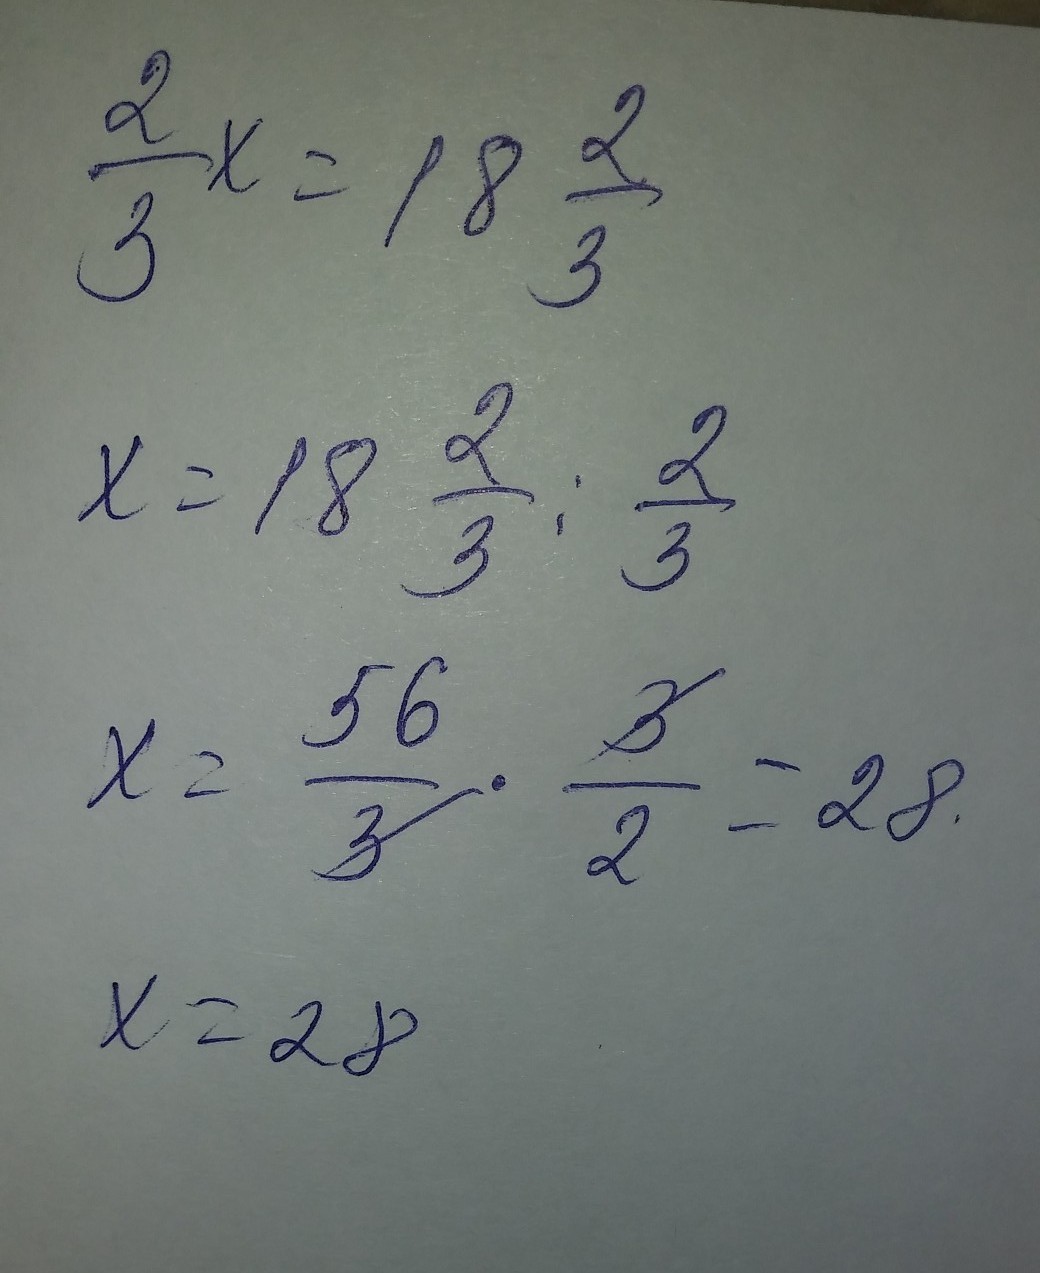 2/3 x = 18 2/3
x = 18 2/3 : 2/3
x = 56/3 · 3/2 = 28.
x = 28